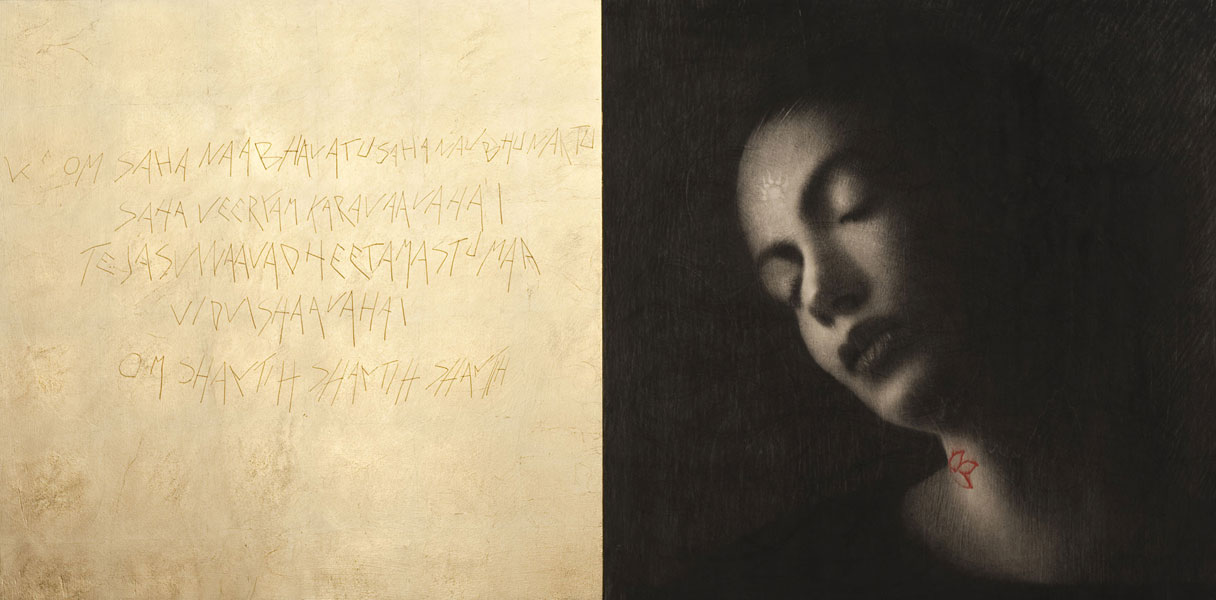 OM SAHA NAABHAVATU SAHA NAU BHUNAKTU
SAHA VEERYAM KARAVAAVAHAI
TEJASVINAAVADHEETAMASTU MAA
VIDVISHAAVAHAI
OM SHANTIH SHANTIH SHANTIH